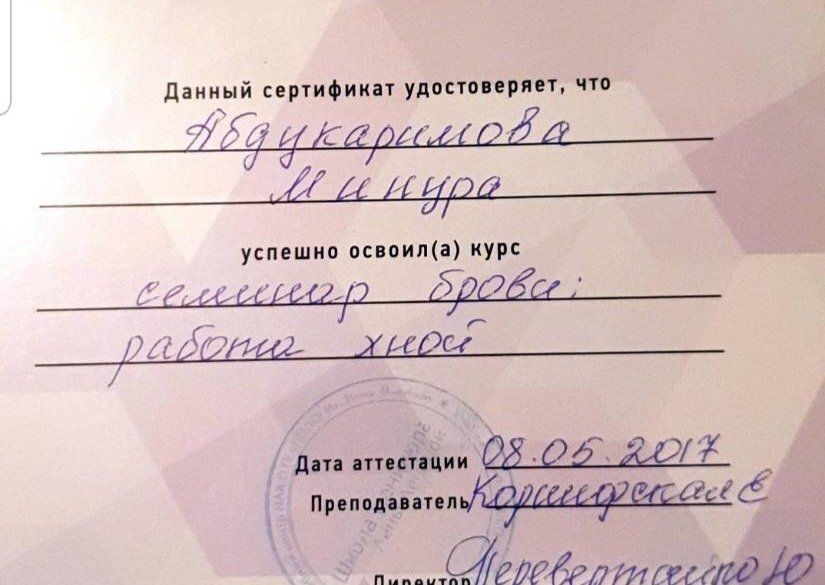 Данный сертификат удостоверяет, что
Абдукаримова
Минура
успешно освоил(а) курс
семинар брови:
работа хной
Дата аттестации 08.05.2017
Преподаватель
Директор